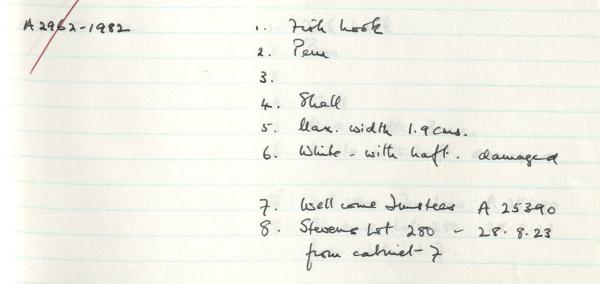 A2962-1982 1. Fish hook
2. Peru
3.
4. Shell
5. Max. width 1.9 cms.
6. White - with haft. damaged
7. Wellcome Trustees A 25390
8. Stevens Lot 280 - 28.8.23
from cabinet 7